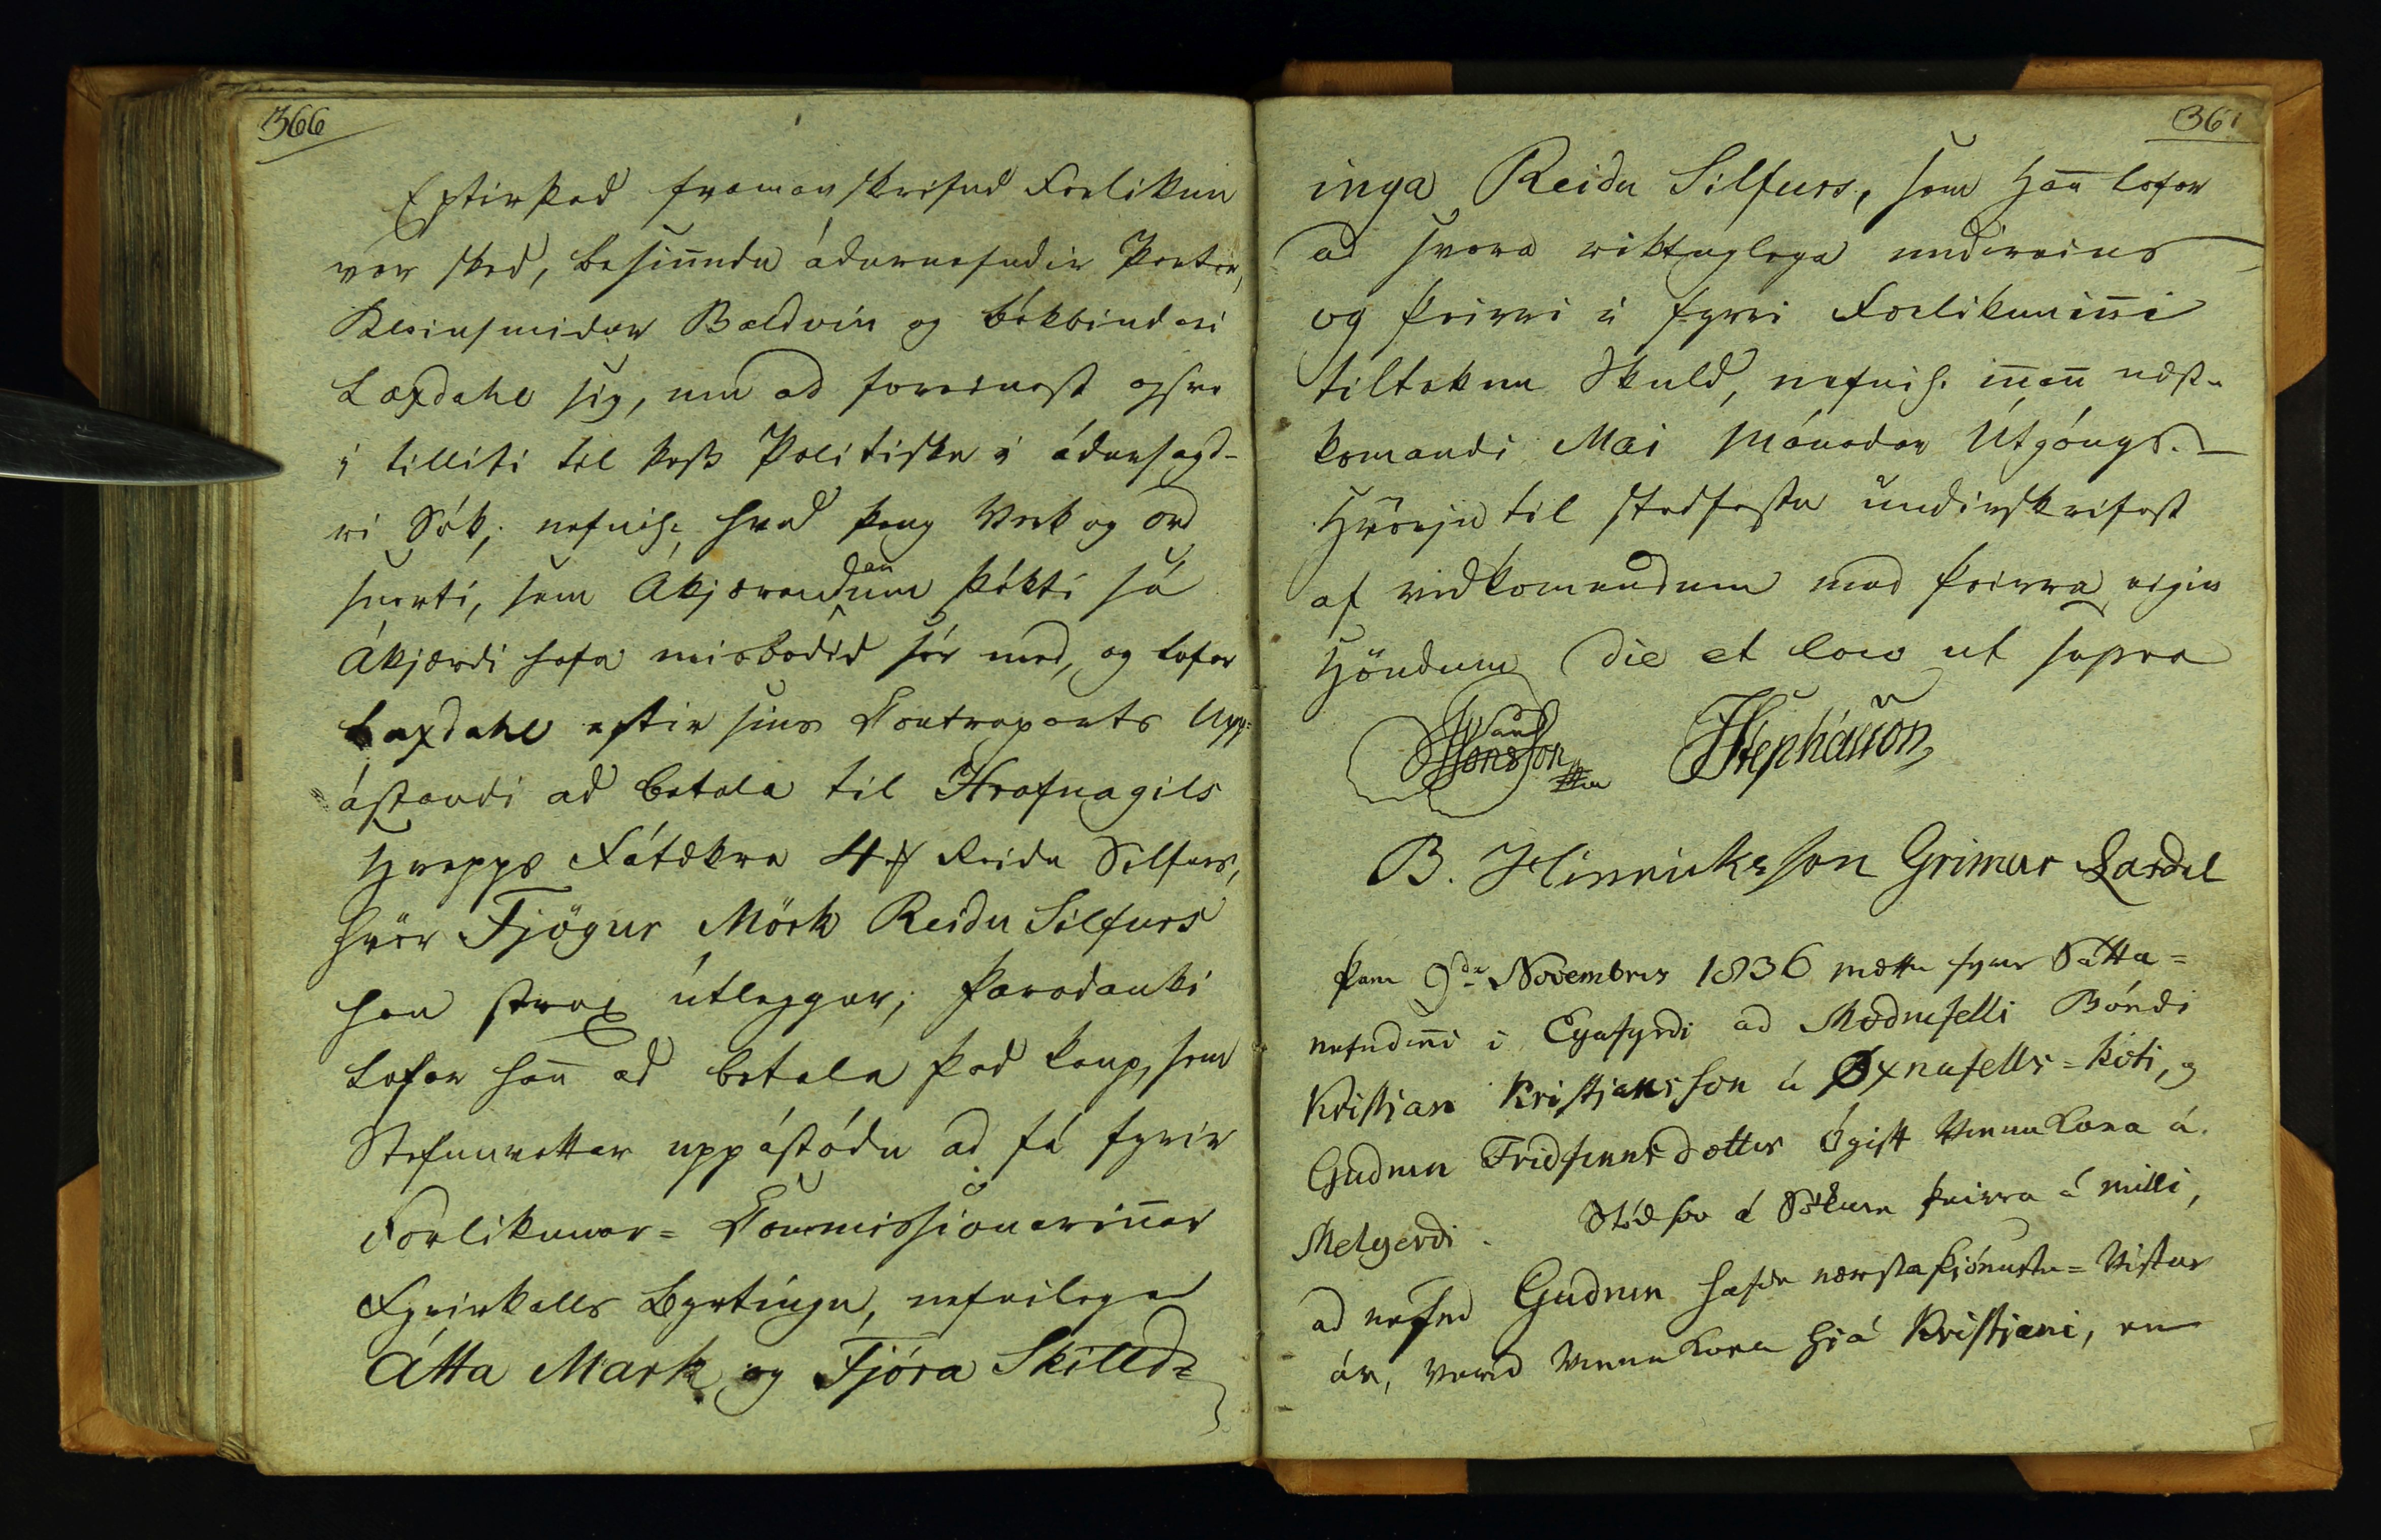 366
Eptir þad framanskrifud Forlikun
var sked, besiñudu ádurnefndir Partar,
Kleinsmidur Baldvin og bókbindari
Laxdahl sig, um ad foreinast ogsvo
i tilliti til þess Politiska i ádursagd-
ri Sök, nefnil. hvad þaug Verk og ord
snerti, sem Akjærandanum þókti sá
Ákjærdi hafa misbodid sér med, og lofar
Laxdahl eftir sins Contraparts Upp=
ástandi ad betala til Hrafnagils
Hrepps Fátækra 4 Reidu Silfurs,
hvör Fjögur Mörk Reidu Silfurs
han strax útleggur; þaradauki
Lofar hañ ad betala þad kaup, sem
Stefnuvottar uppástódu ad fá fyrir
Forlikunar=Commissionariñar
Fyrirkalls Byrtingu, nefnilega
Átta Mark og Fjóra Skilld=
367
inga Reidu Silfurs, sem Hañ lofar
ad svara riktuglega undireins
og þeirri i fyrri Forlikuniñi
tiltekun Skuld, nefnil. iñañ næst-
komandi Mai Mánadar Útgöngu.
Hvörju til stadfestu undirskrifast
af vidkomandum med þeirra eigin
Höndum die et loco ut supra
JStephánson
B. Hinrickssson Grimur Laxdal
Þann 9da Novembris 1836 mættu fyrir Sátta=
nefndiñi i Eyafyrdi ad Mødrufelli Bóndi
Kristjan Kristjansson á Øxnafells=koti, og
Gudrun Fridfinnsdotter Ógift Vinnukona á
Melgerdi. Stód svo á Sökum þeirra á milli,
ad nefnd Gudrun hafdi næsta þjónustu=Vistar
ár, verid Vinnukona hiá Kristjani, en